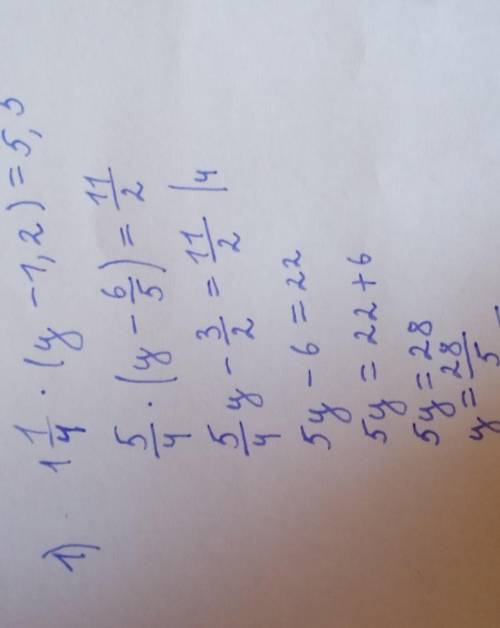 1) 1 1/4 · (y - 1,2) = 5,5
5/4 · (y - 6/5) = 11/2
5/4 y - 3/2 = 11/2 | 4
5y - 6 = 22
5y = 22 + 6
5y = 28
y = 28/5